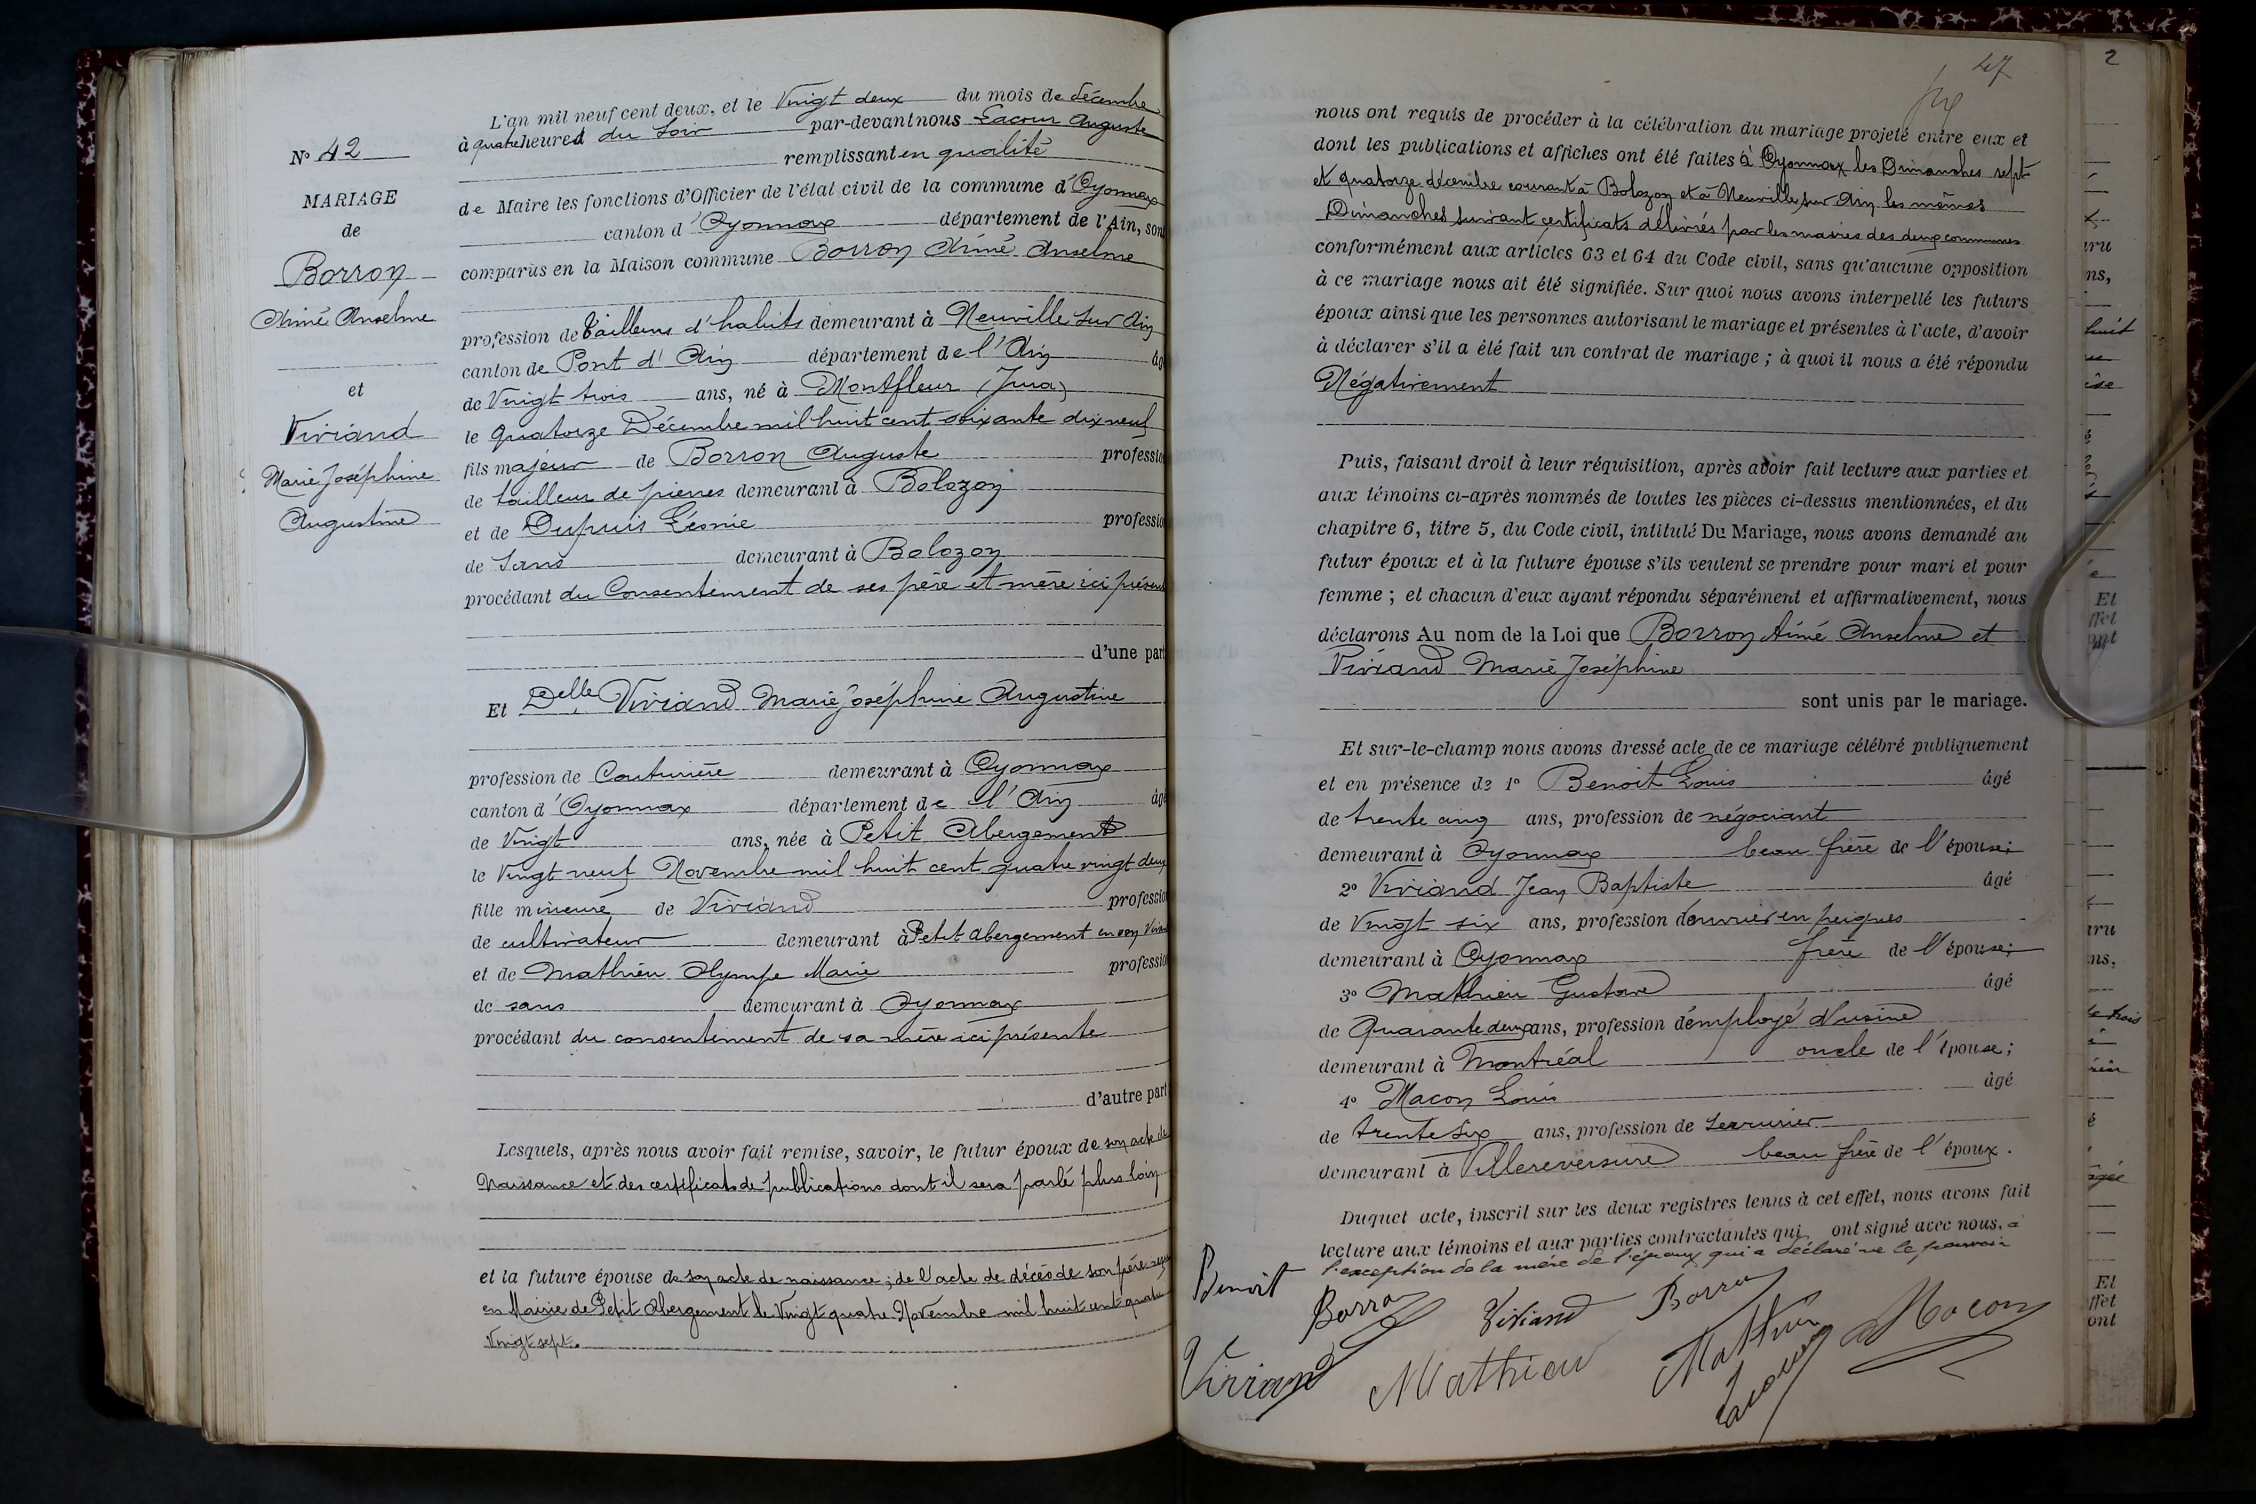 N° 42
MARIAGE
de
Borron
Aimé Anselme
et
Viviand
Marie Joséphine
Augustine
L'an mil neuf cent deux, et le Vingt deux du mois de décembre
à quatre heures du Soir par-devant nous Lacour Auguste
remplissant en qualité
de Maire les fonctions d'Officier de l'état civil de la commune d'Oyonnax
canton d'Oyonnax département de l'Ain, sont
comparus en la Maison commune Borron Aimé Anselme
profession de Tailleurs d'habits demeurant à Neuville sur Ain
canton de Pont d'Ain département de l'Ain âgé
de Vingt trois ans, né à Montfleur (Jura)
le quatorze Décembre mil huit cent soixante dix neuf
fils majeur de Borron Auguste profession
de tailleur de pierres demeurant à Bolozon
et de Dupuis Léonie profession
de Sans demeurant à Bolozon
procédant du Consentement de ses père et mère ici présents
d'une part
Et Delle Viviand Marie Joséphine Augustine
profession de Couturière demeurant à Oyonnax
canton d'Oyonnax département de l'Ain âgé
de Vingt ans, née à Petit Abergement
le Vingt neuf Novembre mil huit cent quatre vingt deux
fille mineure de Viviand profession
de cultivateur demeurant à Petit Abergement
et de Mathieu Olympe Marie profession
de sans demeurant à Oyonnax
procédant du consentement de sa mère ici présente
d'autre part
Lesquels, après nous avoir fait remise, savoir, le futur époux de son acte de
Naissance et des certificats de publications dont il sera parlé plus loin
et la future épouse de son acte de naissance ; de l'acte de décès de son père reçu
en Mairie de Petit Abergement le Vingt quatre Novembre mil huit cent quatre
Vingt sept.
47
nous ont requis de procéder à la célébration du mariage projeté entre eux et
dont les publications et affiches ont été faites à Oyonnax les Dimanches sept
et quatorze décembre courant à Bolozon et à Neuville sur Ain les mêmes
Dimanches suivant certificats délivrés par les maires des deux communes
conformément aux articles 63 et 64 du Code civil, sans qu'aucune opposition
à ce mariage nous ait été signifiée. Sur quoi nous avons interpellé les futurs
époux ainsi que les personnes autorisant le mariage et présentes à l'acte, d'avoir
à déclarer s'il a été fait un contrat de mariage ; à quoi il nous a été répondu
Négativement
Puis, faisant droit à leur réquisition, après avoir fait lecture aux parties et
aux témoins ci-après nommés de toutes les pièces ci-dessus mentionnées, et du
chapitre 6, titre 5, du Code civil, intitulé Du Mariage, nous avons demandé au
futur époux et à la future épouse s'ils veulent se prendre pour mari et pour
femme ; et chacun d'eux ayant répondu séparément et affirmativement, nous
déclarons Au nom de la Loi que Borron Aimé Anselme et
Viviand Marie Joséphine
sont unis par le mariage.
Et sur-le-champ nous avons dressé acte de ce mariage célébré publiquement
et en présence de 1° Benoit Louis âgé
de trente cinq ans, profession de négociant
demeurant à Oyonnax beau frère de l'épouse ;
2° Viviand Jean Baptiste âgé
de Vingt six ans, profession d'ouvrier en peignes
demeurant à Oyonnax frère de l'épouse ;
3° Mathieu Gustave âgé
de Quarante deux ans, profession d'employé d'usine
demeurant à Montréal oncle de l'épouse ;
4° Macon Louis âgé
de trente six ans, profession de Serrurier
demeurant à Villereversure beau frère de l'époux.
Duquel acte, inscrit sur les deux registres tenus à cet effet, nous avons fait
lecture aux témoins et aux parties contractantes qui ont signé avec nous, à
l'exception de la mère de l'époux qui a déclaré ne le pouvoir
Benoit
Borron Viviand Borron
Viviand Mathieu Mathieu Lacour Macon
2
uru
ns,
huit
Et
ffet
ont
uru
ns,
Et
ffet
ont